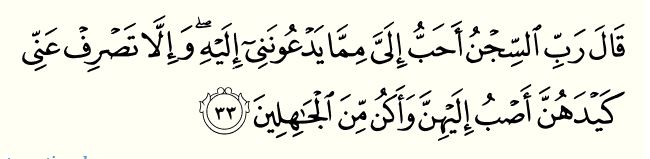 قَالَ رَبِّ ٱلسِّجْنُ أَحَبُّ إِلَىَّ مِمَّا يَدْعُونَنِىٓ إِلَيْهِ ۖ وَإِلَّا تَصْرِفْ عَنِّى
كَيْدَهُنَّ أَصْبُ إِلَيْهِنَّ وَأَكُن مِّنَ ٱلْجَٰهِلِينَ ٣٣